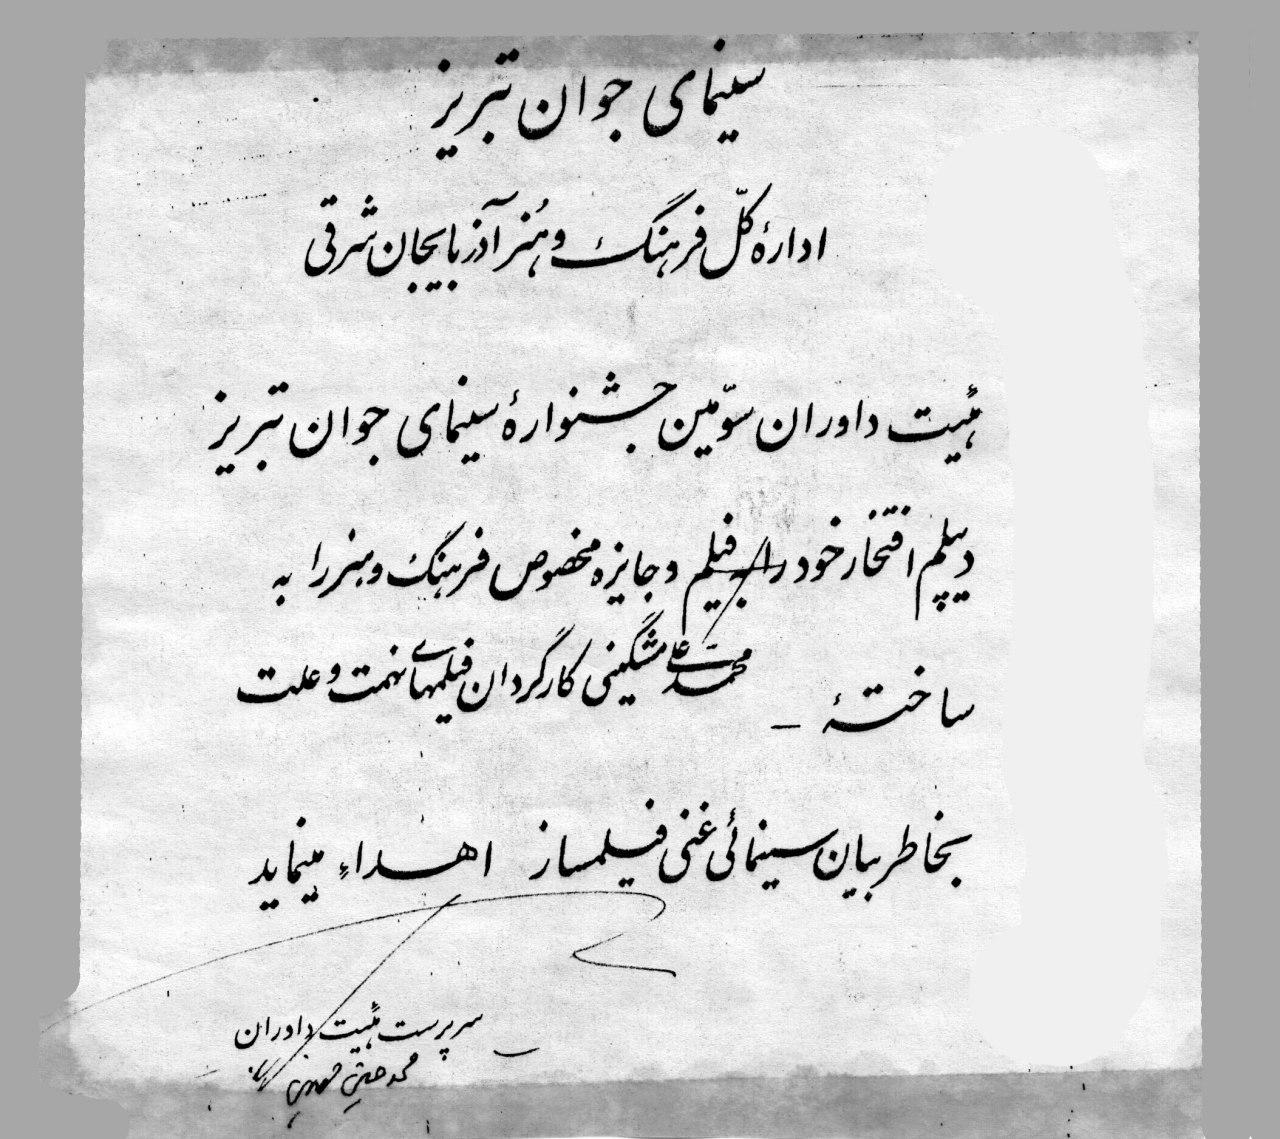 سینمای جوان تبریز
ادارهٔ کلّ فرهنگ و هُنر آذربایجان شرقی
هیئت داوران سوّمین جشنوارهٔ سینمای جوان تبریز
دیپلم افتخار خود را بر فیلم و جایزه مخصوص فرهنگ و هنر را به
ساختهٔ – محمد علی مشگینی کارگردان فیلمهای نهمت و علت
بخاطر بیان سینمائی غنی فیلمساز اهداء مینماید
سرپرست هیئت داوران
محمد